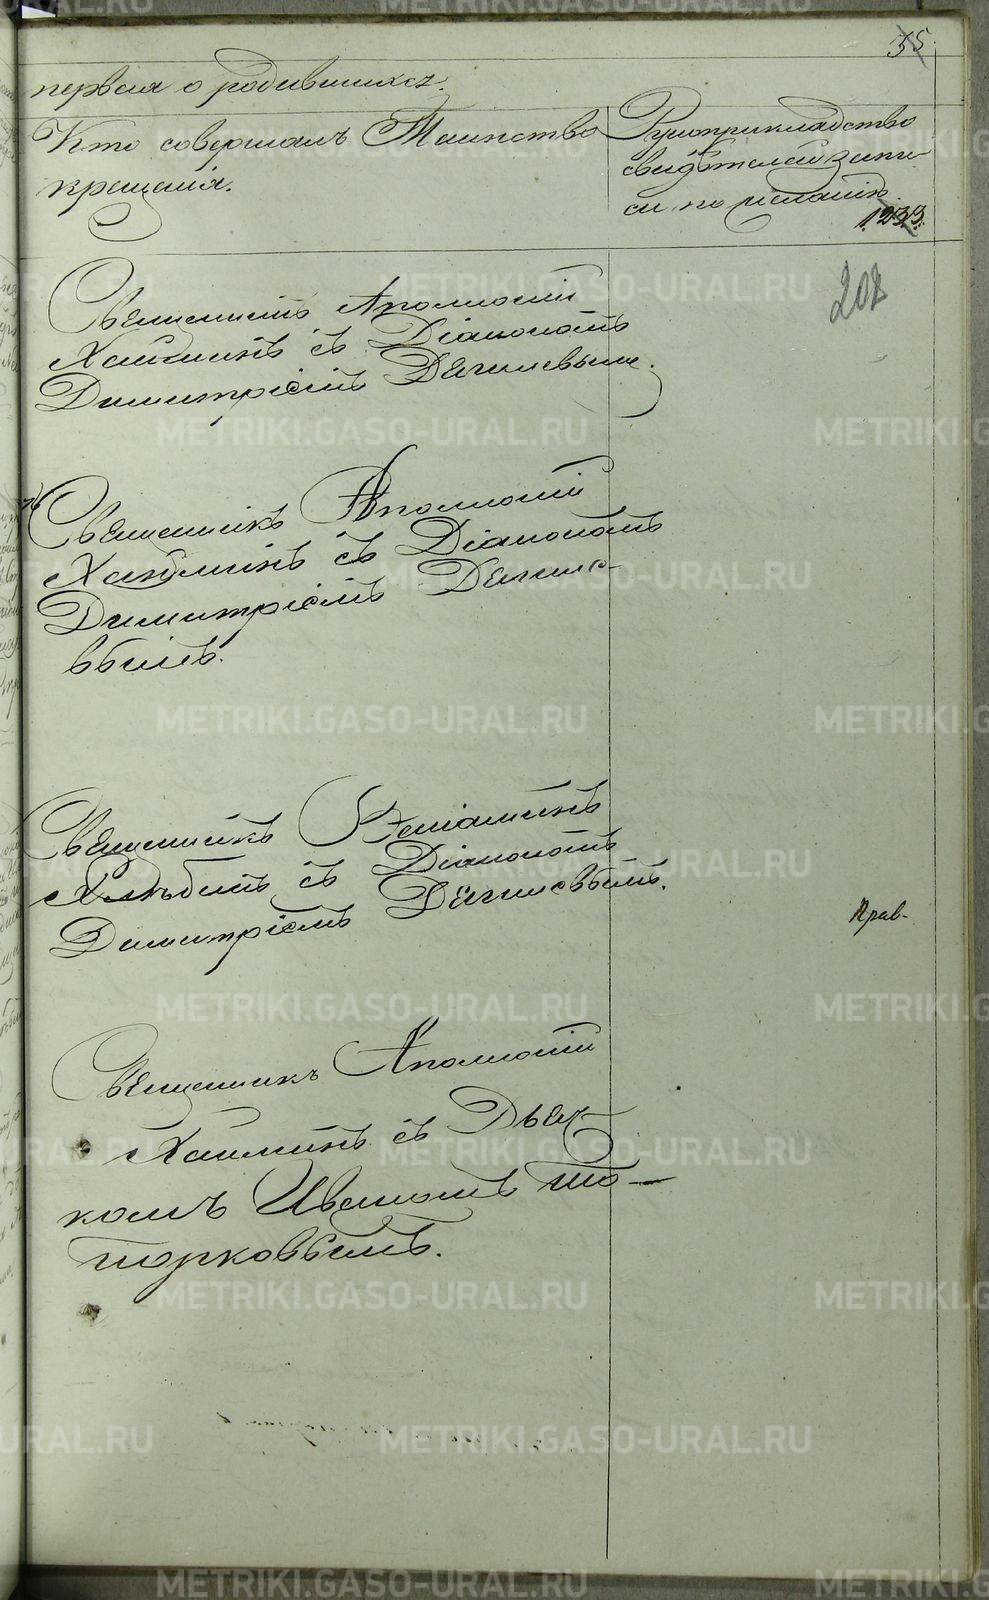 35.
первая о родившихся.
Кто совершалъ Таинство
крещенія.
Рукоприкладство
свидѣтелей запи-
си по желанію.
1233.
208
Священникъ Аполлоній
съ Діакономъ
Димитріемъ Дягилевым.
Священникъ Аполлоній
съ Діакономъ
Димитріемъ Дягиле-
вымъ.
Священникъ Веніаминъ
Хлѣбинъ съ Діакономъ
Димитріемъ Дягилевымъ.
Прав.
Священникъ Аполлоній
съ Дьяч-
комъ Иваномъ То-
порковымъ.
METRIKI.GASO-URAL.RU